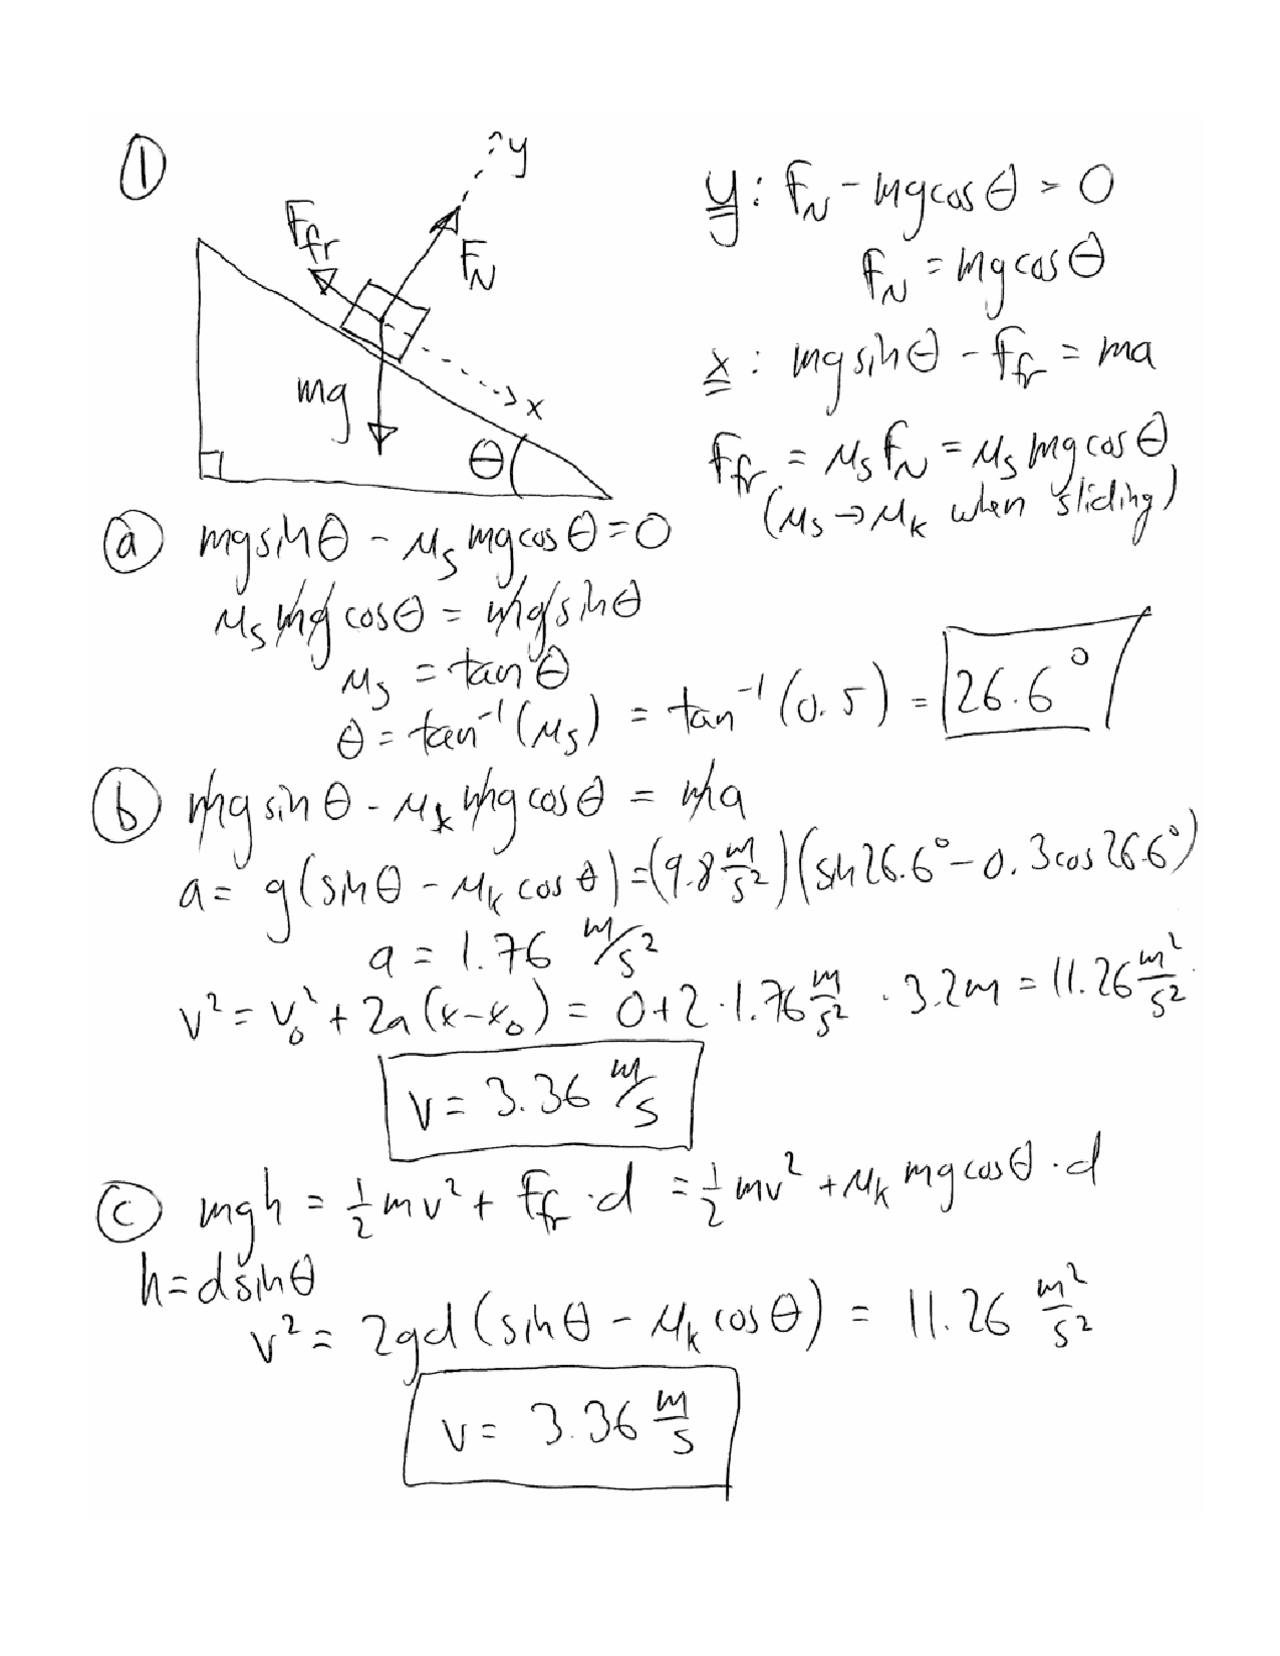 ①
y
F_fr
F_N
mg
x
θ
y: F_N - mg cos θ = 0
F_N = mg cos θ
x: mg sin θ - F_fr = ma
F_fr = μ_s F_N = μ_s mg cos θ
(μ_s → μ_k when sliding)
ⓐ mg sin θ - μ_s mg cos θ = 0
μ_s mg cos θ = mg sin θ
μ_s = tan θ
θ = tan⁻¹(μ_s) = tan⁻¹(0.5) = 26.6°
ⓑ mg sin θ - μ_k mg cos θ = ma
a = g(sin θ - μ_k cos θ) = (9.8 m/s²)(sin 26.6° - 0.3 cos 26.6°)
a = 1.76 m/s²
v² = v₀² + 2a(x-x₀) = 0 + 2 · 1.76 m/s² · 3.2m = 11.26 m²/s²
v = 3.36 m/s
ⓒ mgh = ½mv² + F_fr · d = ½mv² + μ_k mg cos θ · d
h = d sin θ
v² = 2gd(sin θ - μ_k cos θ) = 11.26 m²/s²
v = 3.36 m/s